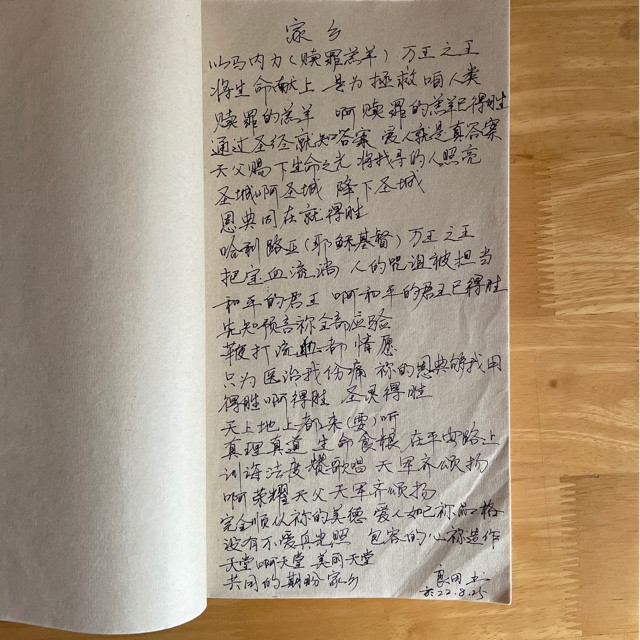 家乡
以马内力(赎罪羔羊) 万王之王
将生命献上 是为拯救咱人类
赎罪的羔羊 啊赎罪的羔羊已得胜
通过圣经就知答案 爱人就是真答案
天父赐下生命之光 将找寻的人照亮
圣城啊圣城 降下圣城
恩典同在就得胜
哈利路亚(耶稣基督) 万王之王
把宝血流淌 人的咒诅被担当
和平的君王 啊和平的君王已得胜
先知预言祢全部应验
鞭打流血都情愿
只为医治我伤痛 祢的恩典够我用
得胜啊得胜 圣灵得胜
天上地上都来(要)听
真理真道 生命食粮 在平安路上
训诲法度赞歌唱 天军齐颂扬
啊荣耀天父天军齐颂扬
完全顺从祢的美德 爱人如己祢的品格
没有不爱真光照 包容的心祢造作
天堂啊天堂 美丽天堂
共同的期盼家乡
良田 书
于22.8.25